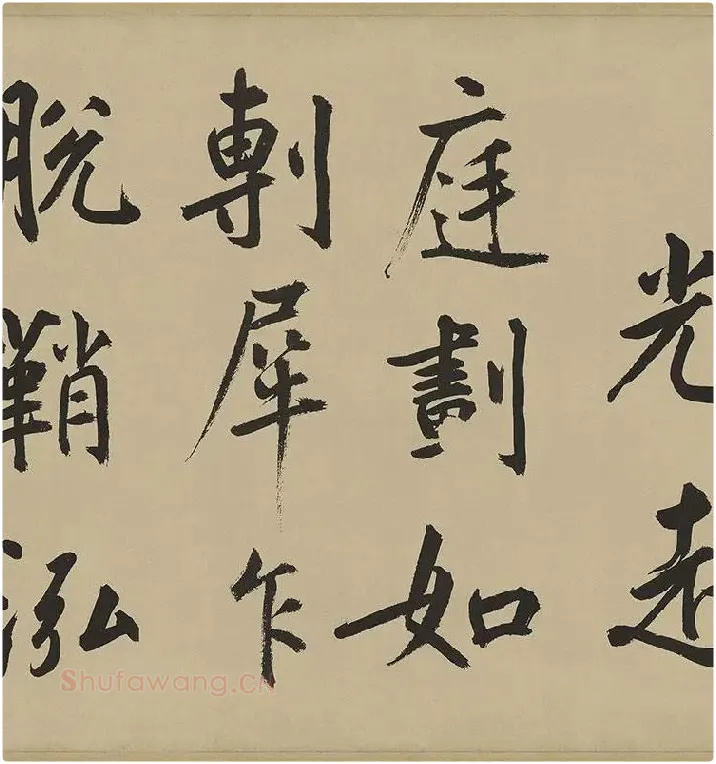 光走
庭劃如
剸犀乍
脫鞘泓
Shufawang.CN